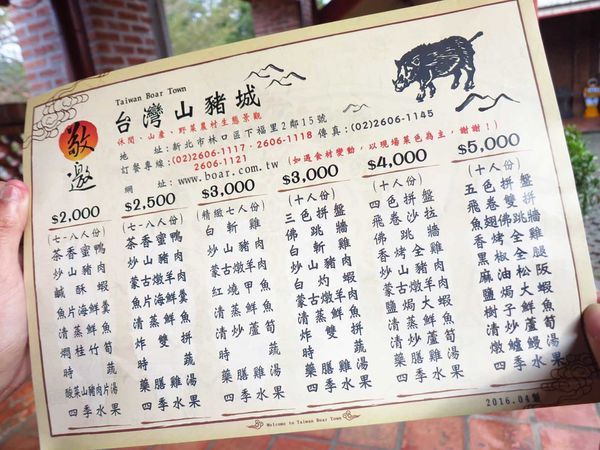 Taiwan Boar Town
台灣山豬城
休閒、山產、野菜農村生態景觀
地 址:新北市林口區下福里2鄰15號
訂餐專線:(02)2606-1117、2606-1118 傳真:(02)2606-1145
2606-1121
網 址:www.boar.com.tw
(如遇食材變動,以現場菜色為主,謝謝!)
敬邀
$2,000
(七-八人份)
茶香蜜鴨
炒山豬肉
鹹酥蝦
魚片海鮮羹
清蒸鮮魚
燜桂竹筍
時蔬
酸菜山豬肉片湯
四季水果
$2,500
(七-八人份)
茶香蜜鴨
炒山豬肉
蒙古燉羊肉
魚片海鮮羹
清蒸鮮魚
炸雙拼
時蔬
藥膳雞湯
四季水果
$3,000
(精緻七人份)
白斬雞
炒山豬肉
蒙古燉羊肉
紅燒甲魚
清蒸鮮魚
清炒蘆筍
時蔬
藥膳雞湯
四季水果
$3,000
(十人份)
三色拼盤
佛跳牆
白斬雞
炒山豬肉
白灼蝦
蒙古燉羊肉
清蒸鮮魚
炸雙拼
時蔬
藥膳雞湯
四季水果
$4,000
(十人份)
四色拼盤
飛卷沙拉
佛跳牆
香烤全雞
炒山豬肉
蒙古燉羊肉
鹽焗大蝦
清蒸鮮魚
清炒蘆筍
藥膳雞湯
四季水果
$5,000
(十人份)
五色拼盤
飛卷雙拼
魚翅佛跳牆
香烤全雞
黑椒全腿
麻油松阪
鹽焗大蝦
樹子鮮魚
清炒蘆筍
燉鱸鰻湯
四季水果
2016.04製
Welcome to Taiwan Boar Town